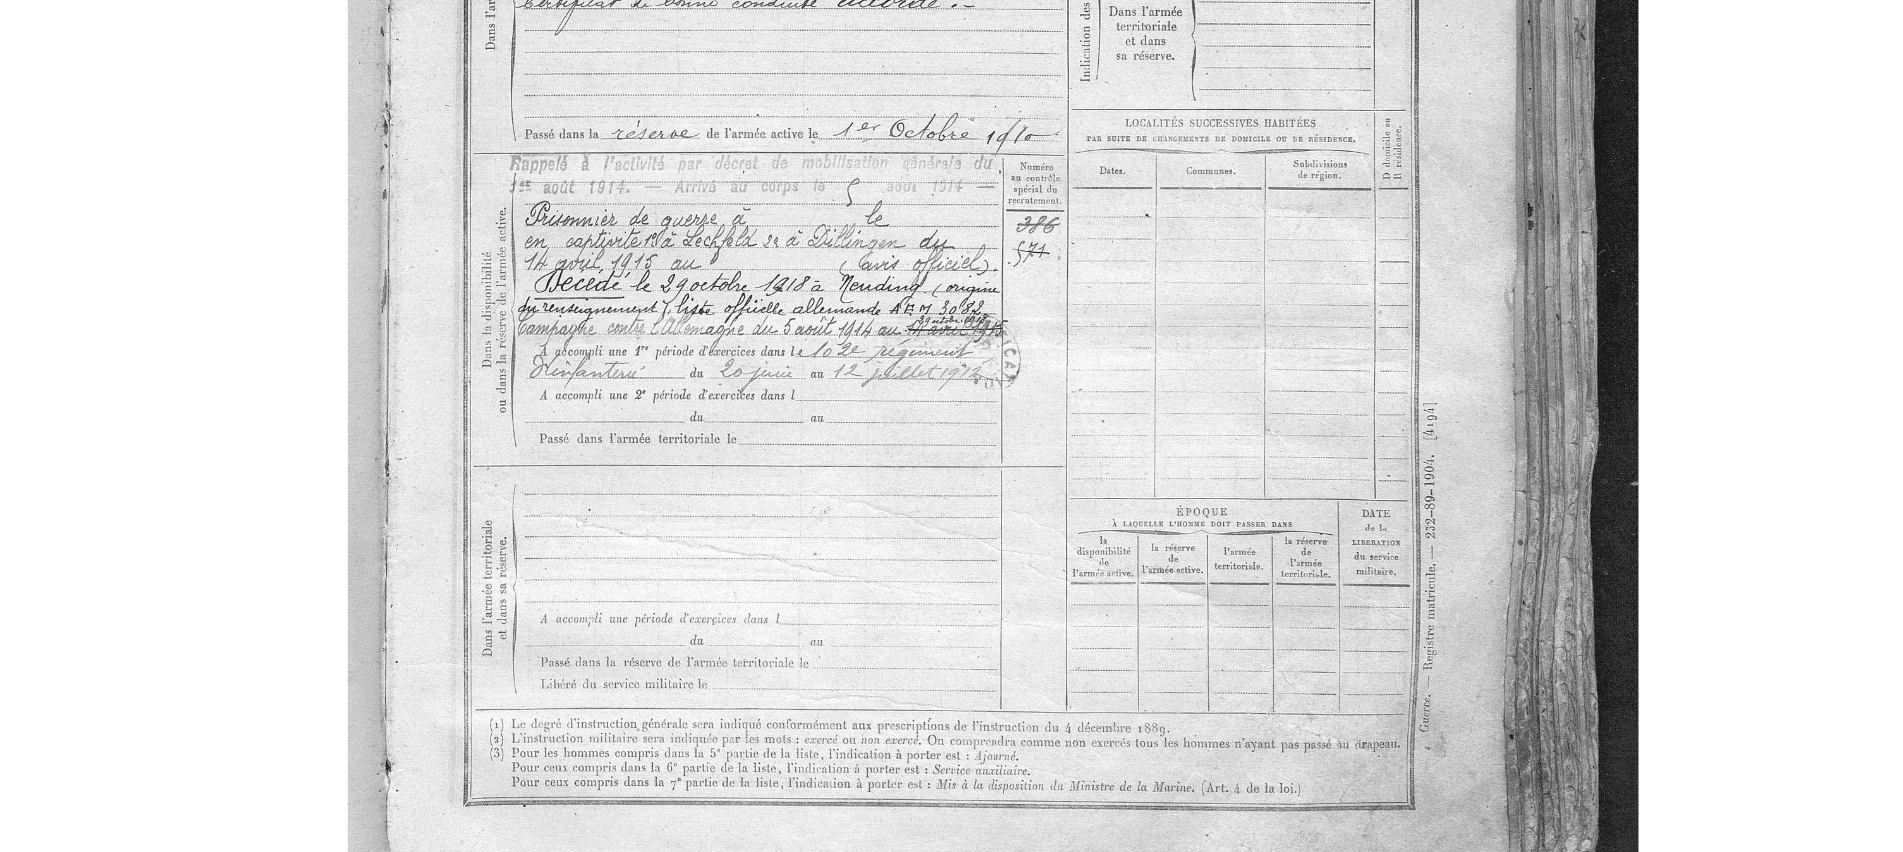 Certificat de bonne conduite accordé. -
Dans l'ar
Passé dans la réserve de l'armée active le 1er Octobre 1910
Dans la disponibilité
ou dans la réserve de l'armée active.
Rappelé à l'activité par décret de mobilisation générale du
1er août 1914. — Arrivé au corps le 5 août 1914 —
Prisonnier de guerre à le
en captivité 1º à Lechfeld 2º à Dillingen du
14 avril 1915 au (avis officiel).
Décédé le 29 octobre 1918 à Neuding (origine
du renseignement) liste officielle allemande 3082
29 octobre 1918
Campagne contre l'Allemagne du 5 août 1914 au 14 avril 1915
A accompli une 1re période d'exercices dans le 102e régiment
d'infanterie du 20 juin au 12 juillet 1912
A accompli une 2e période d'exercices dans l
du au
Passé dans l'armée territoriale le
Numéro
au contrôle
spécial du
recrutement.
386
571
Dans l'armée territoriale
et dans sa réserve.
A accompli une période d'exercices dans l
du au
Passé dans la réserve de l'armée territoriale le
Libéré du service militaire le
Indication des
Dans l'armée
territoriale
et dans
sa réserve.
LOCALITÉS SUCCESSIVES HABITÉES
PAR SUITE DE CHANGEMENTS DE DOMICILE OU DE RÉSIDENCE.
Dates.
Communes.
Subdivisions
de région.
D domicile ou
R résidence.
ÉPOQUE
À LAQUELLE L'HOMME DOIT PASSER DANS
la
disponibilité
de
l'armée active.
la réserve
de
l'armée active.
l'armée
territoriale.
la réserve
de
l'armée
territoriale.
DATE
de la
LIBÉRATION
du service
militaire.
Guerre. — Registre matricule. — 232-89-1904. [4194]
(1) Le degré d'instruction générale sera indiqué conformément aux prescriptions de l'instruction du 4 décembre 1889.
(2) L'instruction militaire sera indiquée par les mots : exercé ou non exercé. On comprendra comme non exercés tous les hommes n'ayant pas passé au drapeau.
(3) Pour les hommes compris dans la 5e partie de la liste, l'indication à porter est : Ajourné.
Pour ceux compris dans la 6e partie de la liste, l'indication à porter est : Service auxiliaire.
Pour ceux compris dans la 7e partie de la liste, l'indication à porter est : Mis à la disposition du Ministre de la Marine. (Art. 4 de la loi.)